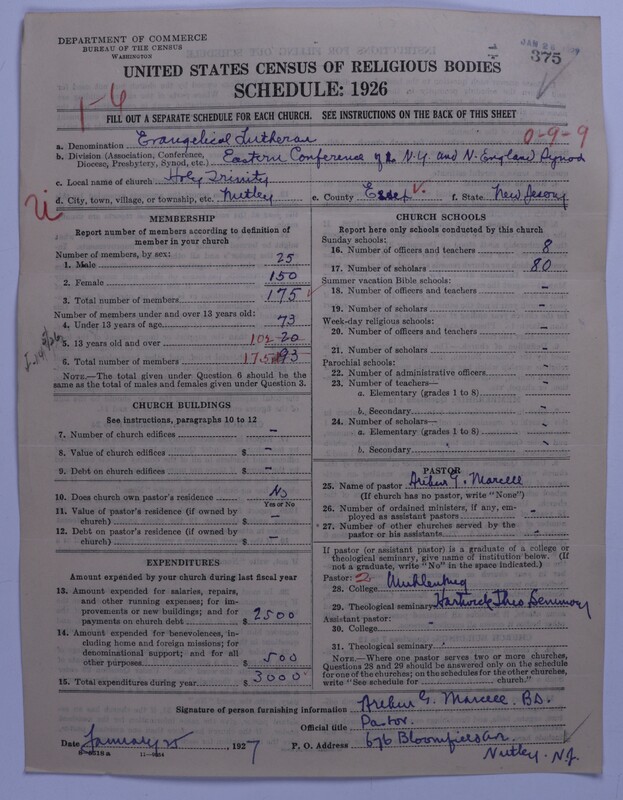 DEPARTMENT OF COMMERCE
BUREAU OF THE CENSUS
WASHINGTON
JAN 28
375
UNITED STATES CENSUS OF RELIGIOUS BODIES
SCHEDULE: 1926
1-6
FILL OUT A SEPARATE SCHEDULE FOR EACH CHURCH. SEE INSTRUCTIONS ON THE BACK OF THIS SHEET
a. Denomination Evangelical Lutheran 0-9-9
b. Division (Association, Conference, Diocese, Presbytery, Synod, etc.) Eastern Conference of the N.Y. and N. England Synod
c. Local name of church Holy Trinity
d. City, town, village, or township, etc. Nutley e. County Essex f. State New Jersey
MEMBERSHIP
Report number of members according to definition of
member in your church
Number of members, by sex:
1. Male 25
2. Female 150
3. Total number of members 175
Number of members under and over 13 years old:
4. Under 13 years of age 73
5. 13 years old and over 102 20
6. Total number of members 175 93
NOTE.—The total given under Question 6 should be
same as the total of males and females given under Question 3.
CHURCH BUILDINGS
See instructions, paragraphs 10 to 12
7. Number of church edifices —
8. Value of church edifices $ —
9. Debt on church edifices $ —
10. Does church own pastor's residence No
Yes or No
11. Value of pastor's residence (if owned by
church) $ —
12. Debt on pastor's residence (if owned by
church) $ —
EXPENDITURES
Amount expended by your church during last fiscal year
13. Amount expended for salaries, repairs,
and other running expenses; for im-
provements or new buildings; and for
payments on church debt $ 2500
14. Amount expended for benevolences, in-
cluding home and foreign missions; for
denominational support; and for all
other purposes $ 500
15. Total expenditures during year $ 3000
CHURCH SCHOOLS
Report here only schools conducted by this church
Sunday schools:
16. Number of officers and teachers 8
17. Number of scholars 80
Summer vacation Bible schools:
18. Number of officers and teachers —
19. Number of scholars —
Week-day religious schools:
20. Number of officers and teachers —
21. Number of scholars —
Parochial schools:
22. Number of administrative officers —
23. Number of teachers—
a. Elementary (grades 1 to 8) —
b. Secondary —
24. Number of scholars—
a. Elementary (grades 1 to 8) —
b. Secondary —
PASTOR
25. Name of pastor Arthur G. Marcell
(If church has no pastor, write "None")
26. Number of ordained ministers, if any, em-
ployed as assistant pastors —
27. Number of other churches served by the
pastor or his assistants —
If pastor (or assistant pastor) is a graduate of a college or
theological seminary, give name of institution below. (If
not a graduate, write "No" in the space indicated.)
Pastor: 2
28. College Muhlenburg
29. Theological seminary Hartwick Theo Seminary
Assistant pastor:
30. College —
31. Theological seminary
NOTE.—Where one pastor serves two or more churches,
Questions 28 and 29 should be answered only on the schedule
for one of the churches; on the schedules for the other churches,
write "See schedule for church."
Signature of person furnishing information Arthur G. Marcell. B.D.
Official title Pastor.
Date January 25, 1927 P. O. Address 676 Bloomfield Av.
Nutley. N.J.